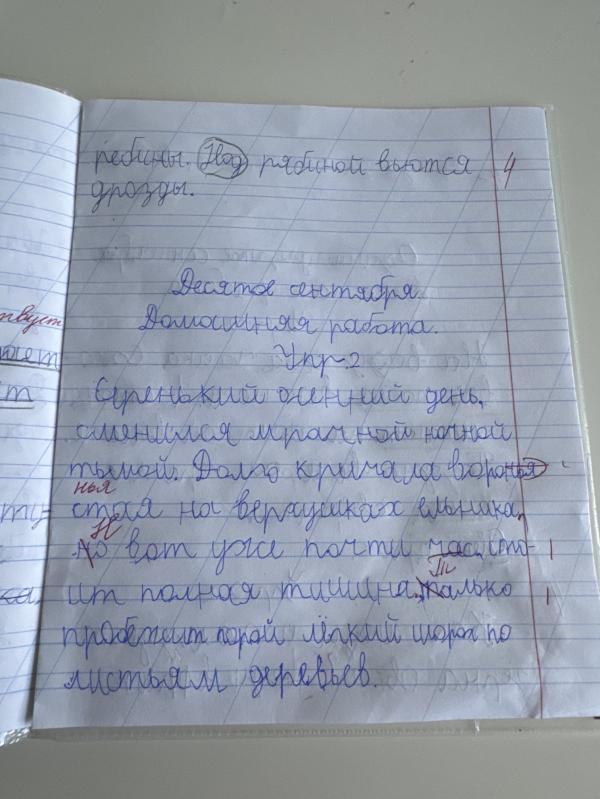 ребины. Над рябиной вьются 4
дрозды.
Десятое сентября.
Домашняя работа.
Упр. 2
твует
Серенький осенний день,
сменился мрачной ночной
тьмой. Долго кричала воронья
нья
стая на верхушках ельника,
Н
но вот уже почти час сто-
ит полная тишина, Т только
пробежит порой лёгкий шорох по
листьям деревьев.